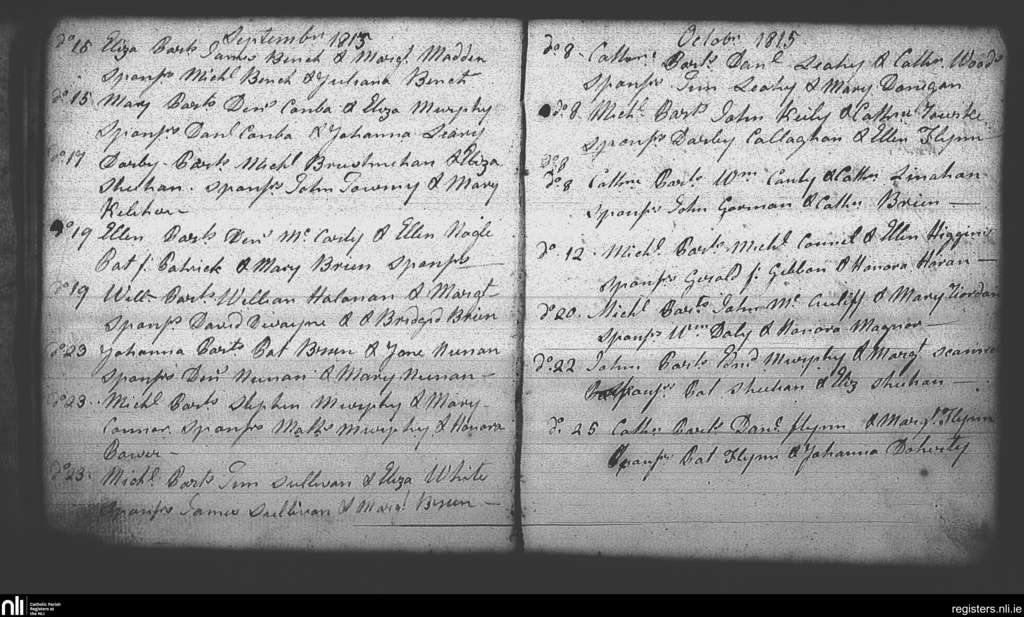 September 1815
do 15 Eliza Bart. James Bench & Margt. Madden
Sponsrs Michl Bench & Juliana Bench
do 15 Mary Bart. Denis Conba & Eliza Murphy
Sponsrs Danl Conba & Johanna Leary
do 17 Darby Bart. Michl & Eliza
Shehan. Sponsrs John Towmy & Mary
Keleher
do 19 Ellen Bart. Denis Mc Carty & Ellen Nagle
Pat f. Patrick & Mary Brien Sponsrs
do 19 Willm Bart. William Halanan & Margt
Sponsrs David Dwayne & & Bridgid Brien
do 23 Johanna Bart. Pat Brien & Jane Nunan
Sponsrs Denis Nunan & Mary Nunan
do 23. Michl Bart. Stephen Murphy & Mary
Connor Sponsrs Matts Murphy & Honora
Power
do 23. Michl. Bart. Tim Sullivan & Eliza White
Sponsrs James Sullivan & Margt Brien
Octobr 1815
do 8. Cathne Bart. Danl Leahy & Cathne Woods
Sponsrs Tim Leahy & Mary Donigan
do. 8. Michl. Bart. John Keily & Cathne
Sponsrs Darby Callaghan & Ellen Flynn
do. 8
do. 8 Cathne Bart. Wm Canty & Cathne Linahan
Sponsrs John Gorman & Cathne Brien
do. 12. Michl. Bart. Michl Connel & Ellen Higgins
Sponsrs Gerald f. Gibbon & Honora Horan
do 20. Michl Bart. John Mc Auliff & Mary Riordan
Sponsrs Wm Daly & Honora Magner
do. 22 John Bart. Murphy & Margt
Sponsrs Pat Shehan & Eliz Shehan
do. 25 Cathne Bart. Danl Flynn & Margt. Flynn
Sponsrs Pat Flynn & Johanna Doherty
nli
Catholic Parish
Registers at
the NLI
registers.nli.ie